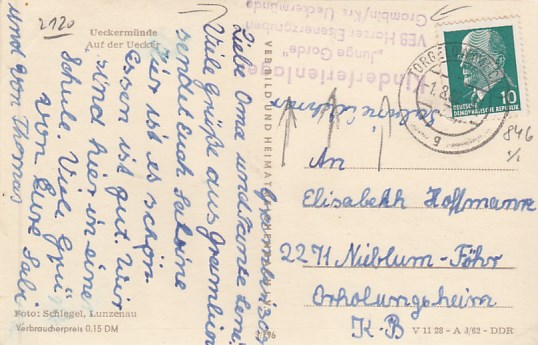 2120
Ueckermünde
Auf der Uecker
Grambin, 30.7.
Liebe Oma und Tante Leni!
Viele Grüße aus Grambin
sendet Euch Sabine
Hier ist es schön
Essen ist gut. Wir
sind hier in einer
Schule. Viele Grüße
von Eure Sabi
und von Thomas
VERB BILD UND HEIMAT REICHENBACH
Kinderferienlager
"Junge Garde"
VEB Harzer Eisenerzgruben
Grambin/Krs. Ueckermünde
DEUTSCHE
DEMOKRATISCHE REPUBLIK
10
846
An
Elisabeth Hoffmann
2271 Nieblum-Föhr
Erholungsheim
K-B
Foto: Schlegel, Lunzenau
Verbraucherpreis 0.15 DM
V 11 28 - A 3/62 - DDR